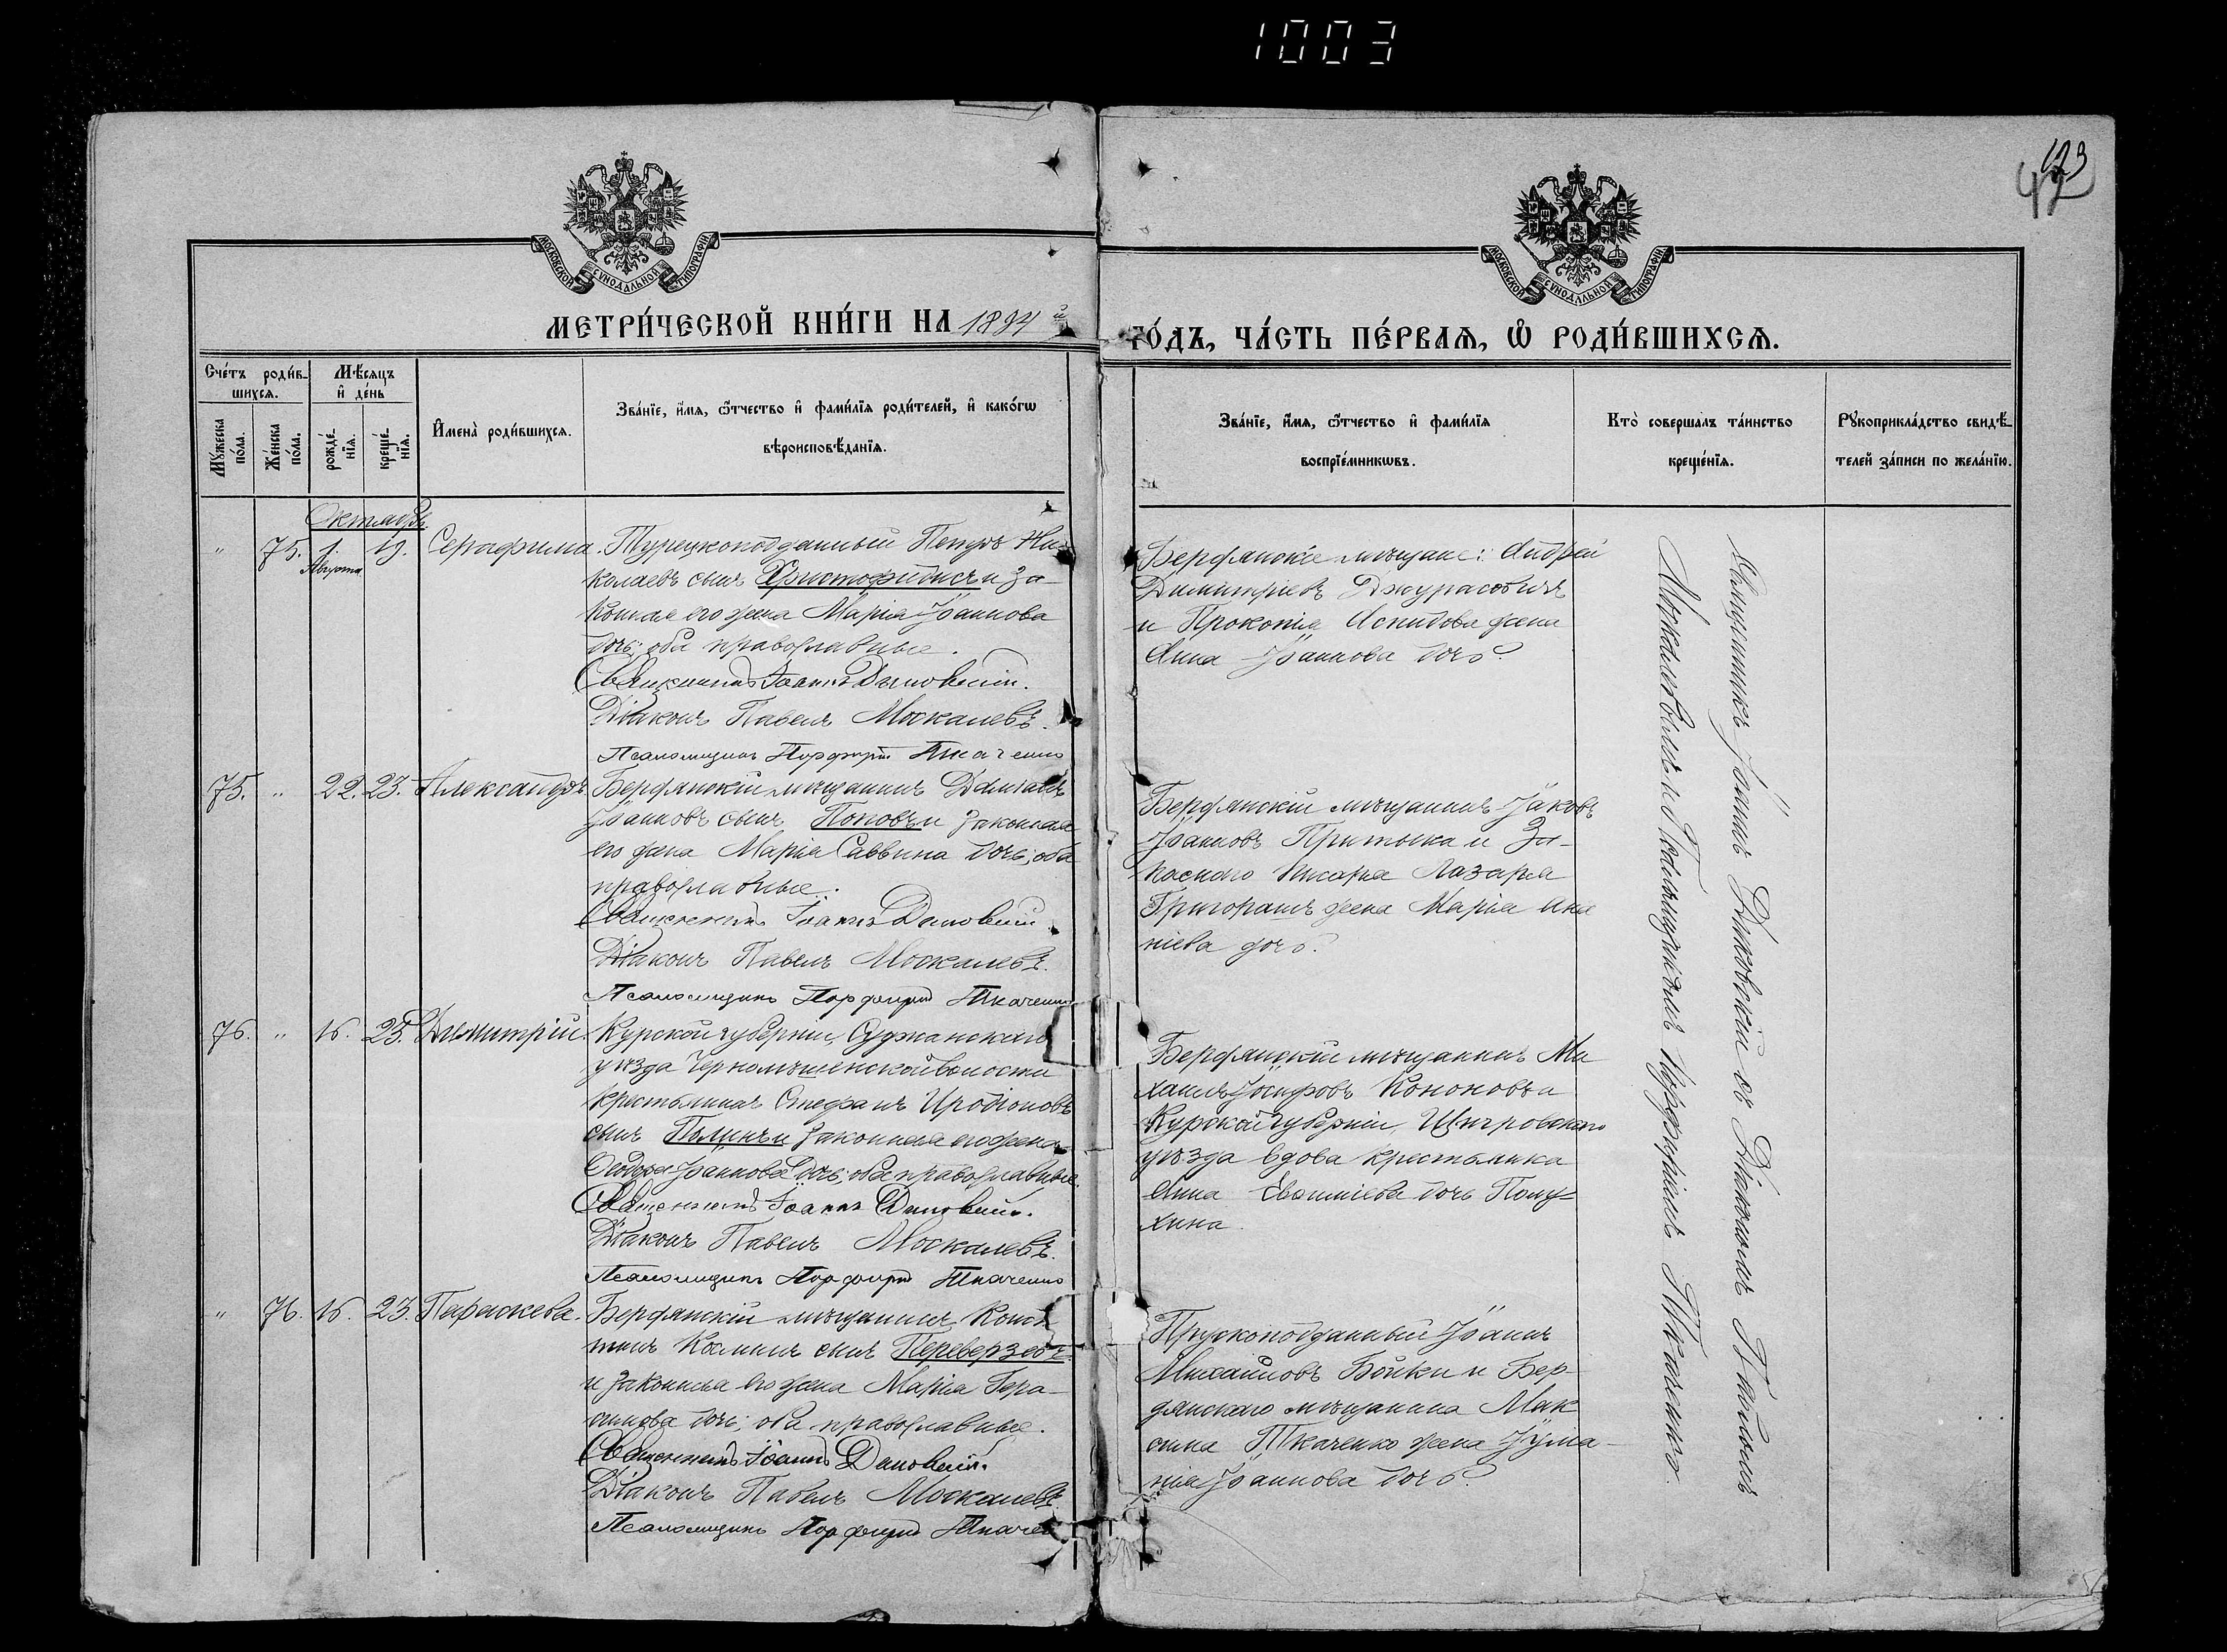 1003
123
42
МОСКОВСКОЙ СѴНОДАЛЬНОЙ ТИПОГРАФІИ
МОСКОВСКОЙ СѴНОДАЛЬНОЙ ТИПОГРАФІИ
МЕТРИ́ЧЕСКОЙ КНИ́ГИ НА 1894 й
ГО́ДЪ, ЧА́СТЬ ПЕ́РВАѦ, Ѡ҆ РОДИ́ВШИХСѦ.
Сче́тъ роди́в-
шихсѧ.
Мꙋ́жеска по́ла.
Же́нска по́ла.
Мѣ́сѧцъ
и҆ де́нь
рожде́-
нїѧ.
креще́-
нїѧ.
И҆мена̀ роди́вшихсѧ.
Зва́нїе, и҆́мѧ, ѻ҆́тчество и҆ фами́лїѧ роди́телей, и҆ како́гѡ
вѣроисповѣ́данїѧ.
Зва́нїе, и҆́мѧ, ѻ҆́тчество и҆ фами́лїѧ
воспрїе́мникѡвъ.
Кто̀ соверша́лъ та́инство
креще́нїѧ.
Рꙋкоприкла́дство свидѣ́-
телей за́писи по жела́нїю.
Октябрь.
" 75. 1. Августа 19. Серафима.
Турецкоподданный Петръ Ни-
колаевъ сынъ Христофидисъ и за-
конная его жена Марія Іоаннова
дочь; оба православные.
Священникъ Іоаннъ Дымовскій.
Діаконъ Павелъ Москалевъ.
Псаломщикъ Порфирій Ткаченко
Бердянскіе мѣщане: Андрей
Димитріевъ Джурасовичъ
и Прокопія Аспидова жена
Анна Іоаннова дочь.
75. " 22. 23. Александръ.
Бердянскій мѣщанинъ Даніилъ
Іоанновъ сынъ Поповъ и законная
его жена Марія Саввина дочь; оба
православные.
Священникъ Іоаннъ Дымовскій.
Діаконъ Павелъ Москалевъ.
Псаломщикъ Порфирій Ткаченко
Бердянскій мѣщанинъ Іаковъ
Іоанновъ Притыка и За-
паснаго писаря Лазаря
Григорашъ жена Марія Ана
ніева дочь.
76. " 16. 23. Димитрій.
Курской губерніи, Суджанскаго
уѣзда Черномошенской волости
крестьянинъ Стефанъ Иродіоновъ
сынъ и законная его жена
Іоаннова дочь; оба православные.
Священникъ Іоаннъ Дымовскій.
Діаконъ Павелъ Москалевъ.
Псаломщикъ Порфирій Ткаченко
Бердянскій мѣщанинъ Ми
хаилъ Іосифовъ Кононовъ и
Курской губерніи, Щигровскаго
уѣзда вдова крестьянка
Анна дочь Полу=
хина.
" 76. 16. 23. Параскева.
Бердянскій мѣщанинъ Конст
тинъ Косминъ сынъ Переверзевъ
и законная его жена Марія Гера-
симова дочь; оба православные.
Священникъ Іоаннъ Дымовскій.
Діаконъ Павелъ Москалевъ.
Псаломщикъ Порфирій Ткачен
Прусскоподданный Іоаннъ
Михайловъ Бойки и Бер-
дянскаго мѣщанина Мак
сима Ткаченко жена Іулiа-
нія Іоаннова дочь.
Священникъ Іоаннъ Дымовскій съ Діакономъ Павломъ
Москалевымъ и Псаломщикомъ Порфиріемъ Ткаченко